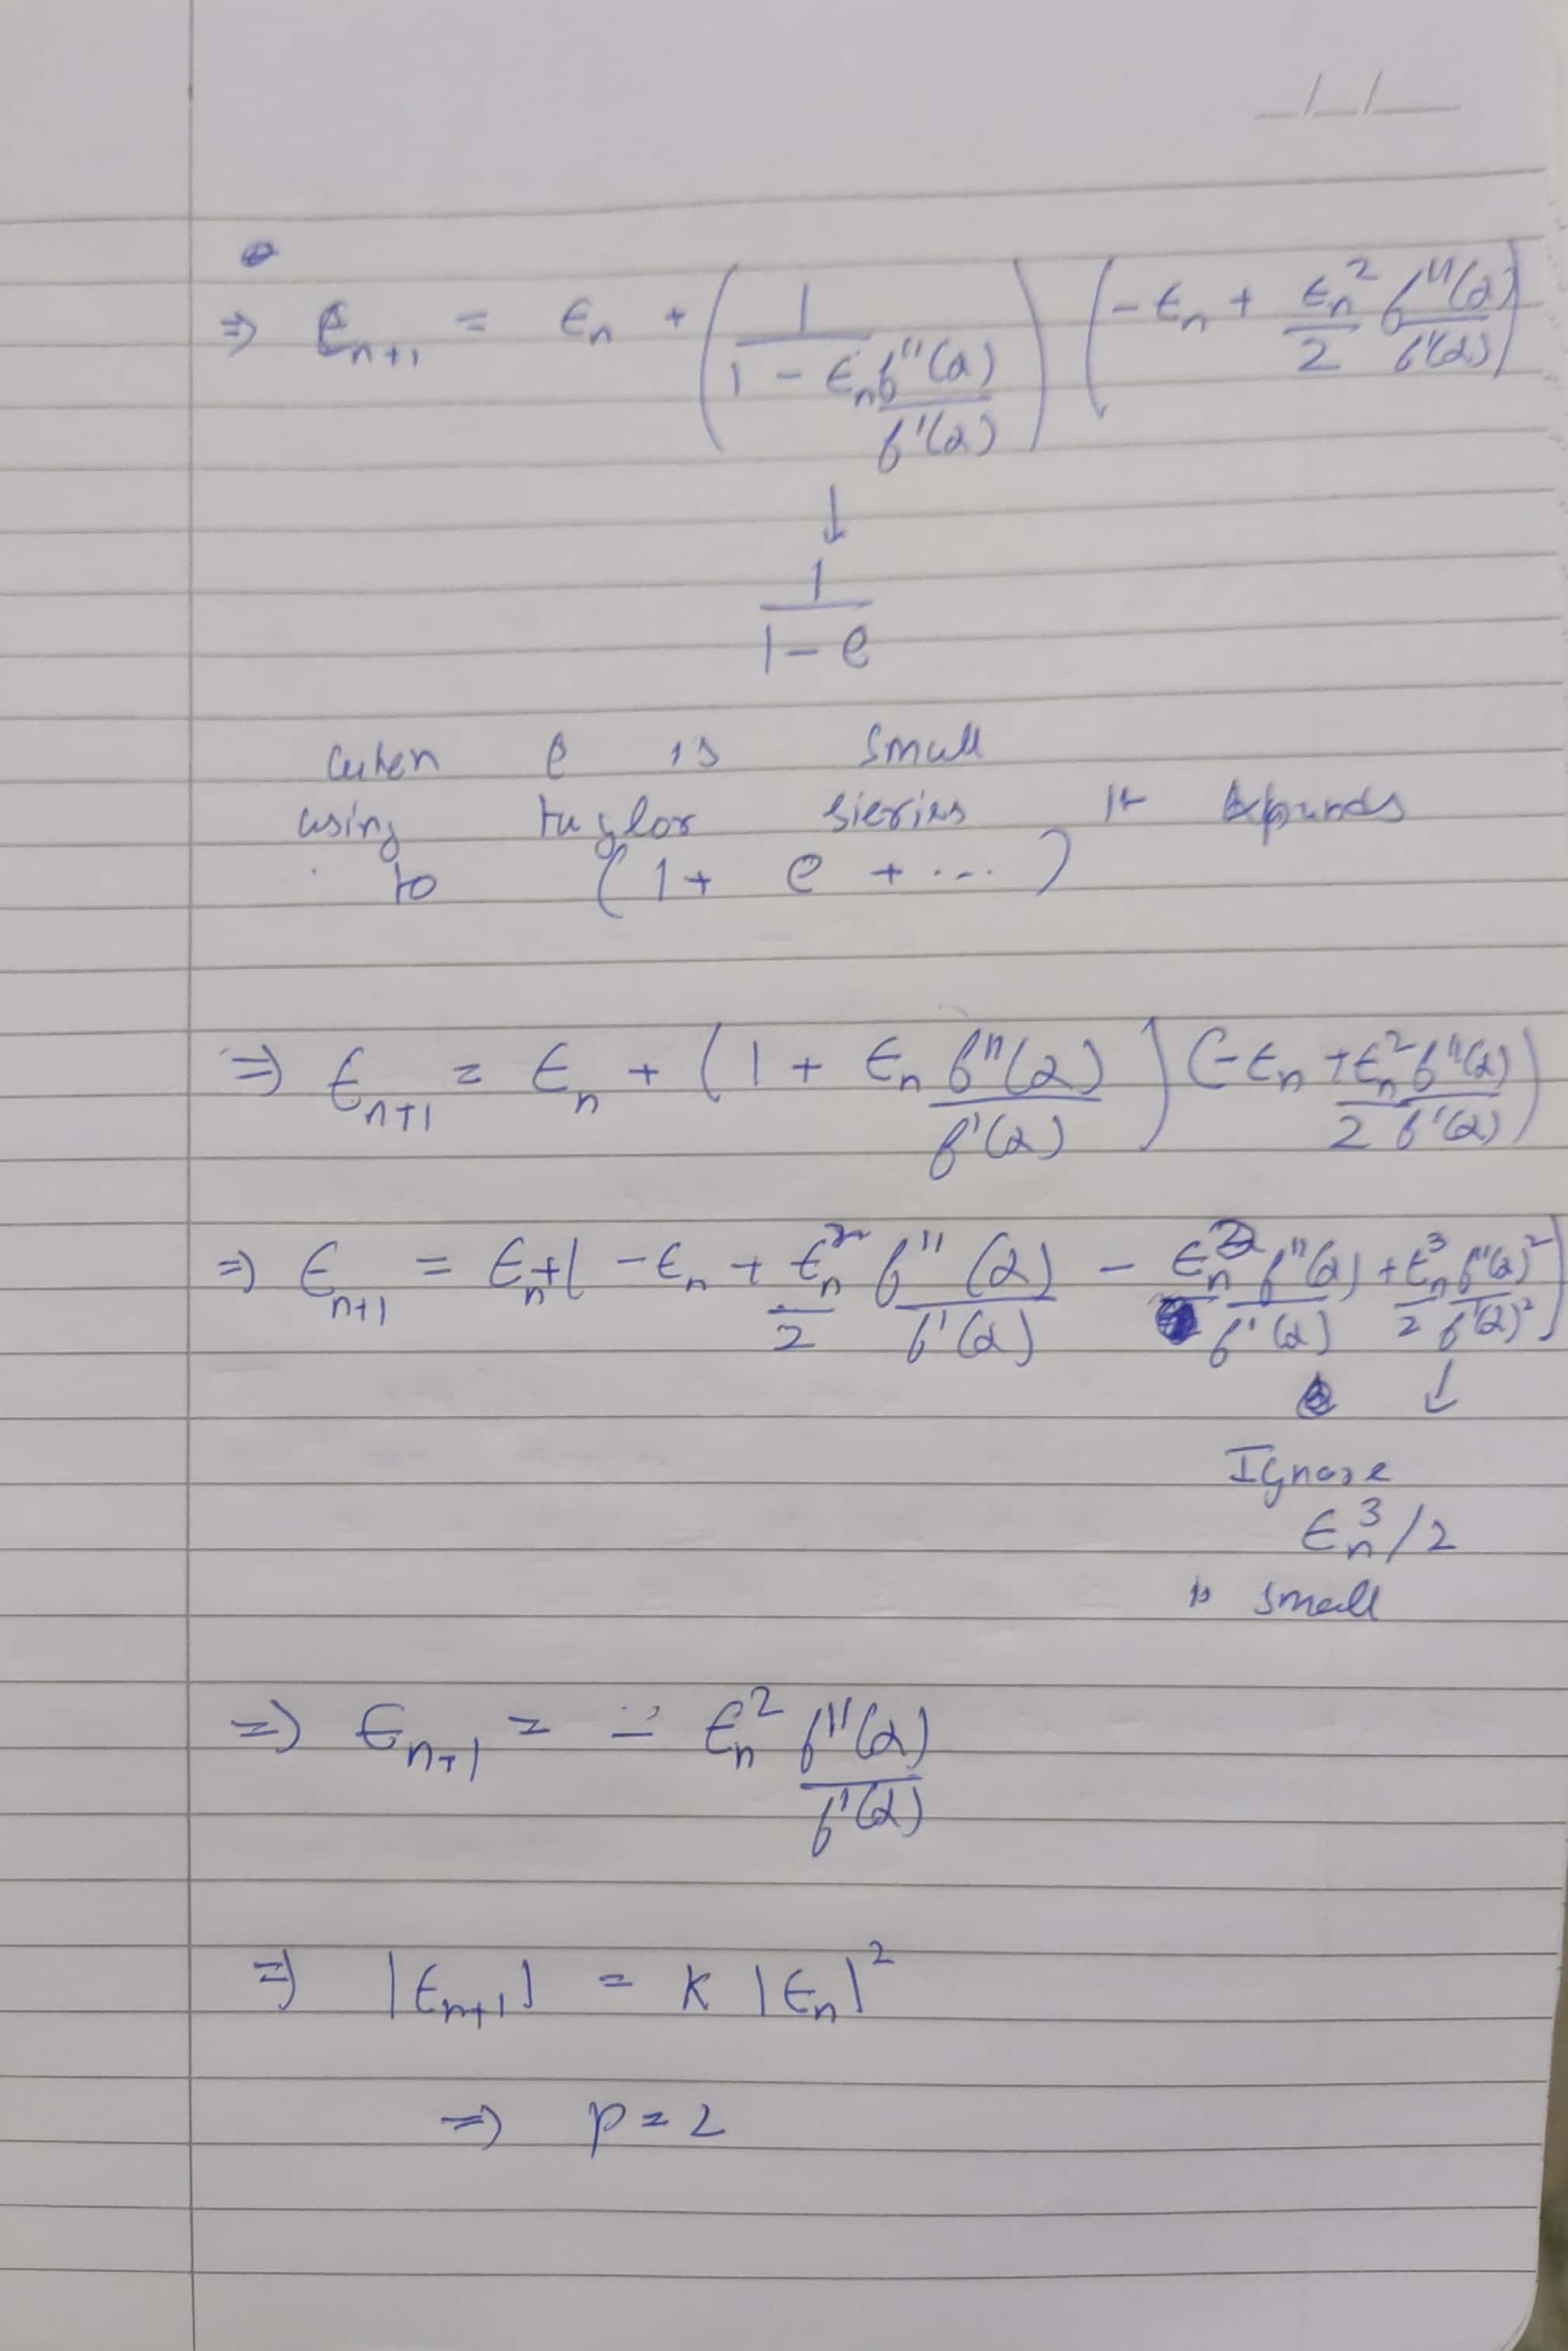 _/_/__
⇒ ϵₙ₊₁ = ϵₙ + (1 / (1 - ϵₙ f''(α)/f'(α))) (-ϵₙ + ϵₙ²/2 f''(α)/f'(α))
↓
1/(1-e)
when e is small
using taylor sieries it expands
to (1 + e + ...)
⇒ ϵₙ₊₁ = ϵₙ + (1 + ϵₙ f''(α)/f'(α)) (-ϵₙ + ϵₙ²/2 f''(α)/f'(α))
⇒ ϵₙ₊₁ = ϵₙ + (-ϵₙ + ϵₙ²/2 f''(α)/f'(α) - ϵₙ² f''(α)/f'(α) + ϵₙ³/2 f''(α)²/f'(α)²)
↓
Ignore
ϵₙ³/2
is small
⇒ ϵₙ₊₁ = - ϵₙ² f''(α)/f'(α)
⇒ |ϵₙ₊₁| = K |ϵₙ|²
⇒ p = 2